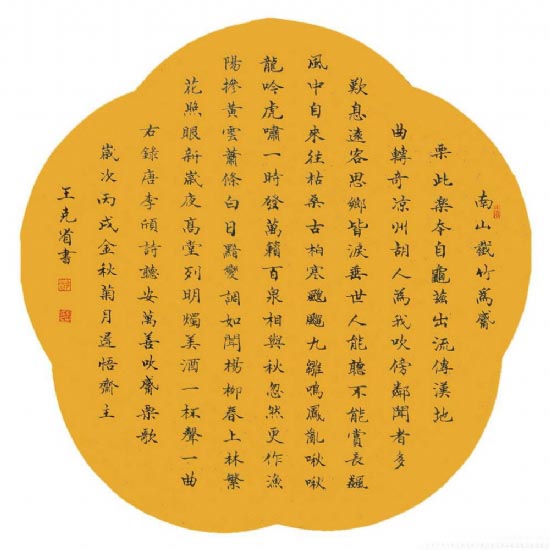 南山截竹爲觱
篥此樂本自龜兹出流傳漢地
曲轉奇凉州胡人爲我吹傍鄰聞者多
歎息遠客思鄉皆淚垂世人能聽不能賞長飆
風中自來往枯桑古柏寒颼飀九雛鳴鳳亂啾啾
龍吟虎嘯一時發萬籟百泉相與秋忽然更作漁
陽摻黄雲蕭條白日黯變調如聞楊柳春上林繁
花照眼新歲夜高堂列明燭美酒一杯聲一曲
右錄唐李頎詩聽安萬善吹觱篥歌
歲次丙戌金秋菊月悟齋主
王克省書